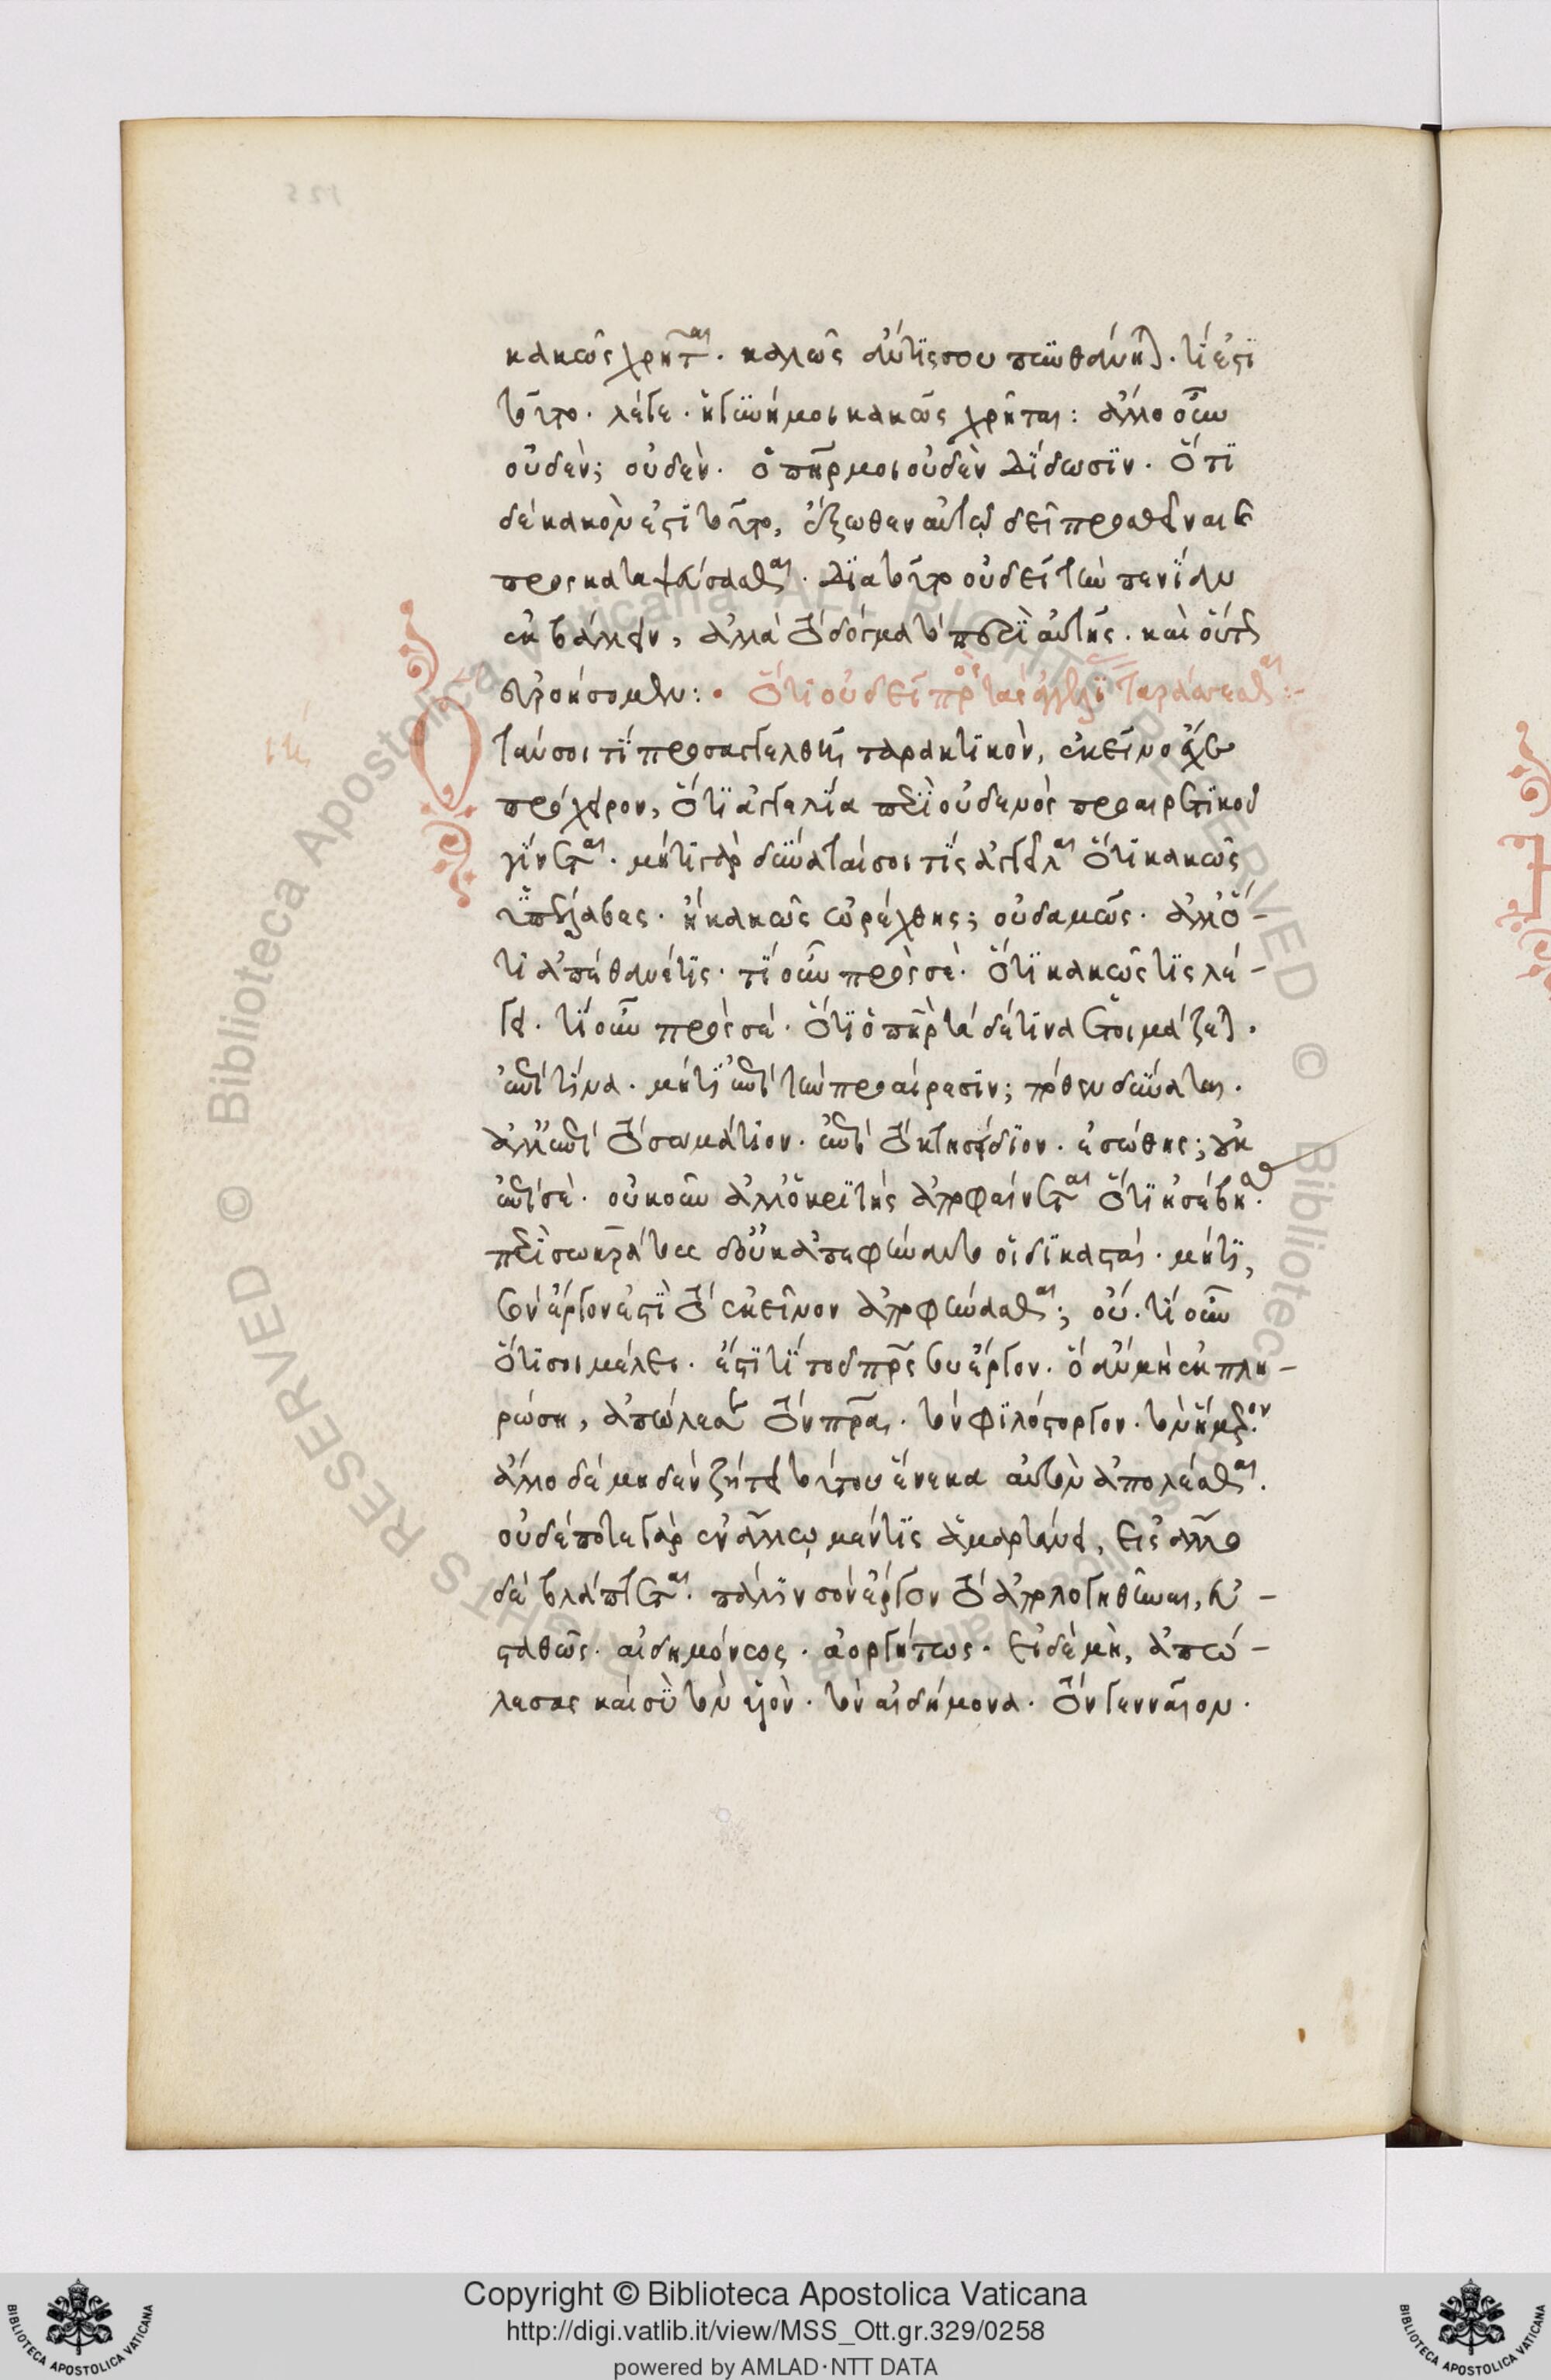 κακῶς χρῆται. καλῶς ἄν τίς σου πυνθάνηται. τί ἐστι
τοῦτο. λέγε. ἡ γυνή μοι κακῶς χρῆται: ἄλλο οὖν
οὐδὲν; οὐδὲν. ὁ πατήρ μοι οὐδὲν δίδωσιν. ὅτι
δὲ κακὸν ἐστὶ τοῦτο, ἔξωθεν αὐτῷ δεῖ προσθεῖναι καὶ
προσκαταψεύσασθαι. διὰ τοῦτο οὐ δεῖ τὴν πενίαν
ἐκβάλλειν, ἀλλὰ τὸ δόγμα τὸ περὶ αὐτῆς. καὶ οὕτως
εὐροήσομεν: • Ὅτι οὐ δεῖ πρὸς τὰς ἀγγελίας ταράσσεσθαι:-
Ὅταν σοι τί προσαγγελθῆ ταρακτικὸν, ἐκεῖνο ἔχε
πρόχειρον, ὅτι ἀγγελία περὶ οὐδενὸς προαιρετικοῦ
γίνεται. μήτι γὰρ δύναταί σοι τίς ἀγγεῖλαι ὅτι κακῶς
ὑπέλαβες. ἢ κακῶς ὠρέχθης; οὐδαμῶς. ἀλλ' ὅ-
τι ἀπέθανέ τις. τί οὖν πρὸς σέ. ὅτι κακῶς τὶς λέ-
γει. τί οὖν πρὸς σέ. ὅτι ὁ πατὴρ τάδε τινὰ ἑτοιμάζεται.
ἐπὶ τίνα. μήτι ἐπὶ τὴν προαίρεσιν; πόθεν δύναται.
ἀλλ' ἐπὶ τὸ σωμάτιον. ἐπὶ τὸ κτησείδιον. ἐσώθης; οὐκ
ἐπὶ σέ. οὐκοῦν ἀλλ' ὁ κριτὴς ἀποφαίνεται ὅτι ἠσέβησας.
περὶ σωκράτους δ' οὐκ ἀπεφήναντο οἱ δικασταί. μήτι,
σὸν ἔργον ἐστὶ τὸ ἐκεῖνον ἀποφήνασθαι; οὔ. τί οὖν
ὅτι σοι μέλει. ἔστι τι τοῦ πατρὸς σου ἔργον. ὃ ἂν μὴ ἐκπλη-
ρώση, ἀπώλεσε τὸν πατέρα. τὸν φιλόστοργον. τὸν ἥμερον.
ἄλλο δὲ μηδὲν ζήτει τούτου ἕνεκα αὐτὸν ἀπολέσθαι.
οὐδέποτε γὰρ ἐν ἄλλῳ μέν τις ἁμαρτάνει, εἰς ἄλλο
δὲ βλάπτεται. πάλιν σὸν ἔργον τὸ ἀπολογηθῆναι, εὐ-
σταθῶς. αἰδημόνως. ἀοργήτως. εἰ δὲ μὴ, ἀπώ-
λεσας καὶ σὺ τὸν υἱὸν. τὸν αἰδήμονα. τὸν γενναῖον.
Copyright © Biblioteca Apostolica Vaticana
http://digi.vatlib.it/view/MSS_Ott.gr.329/0258
powered by AMLAD·NTT DATA